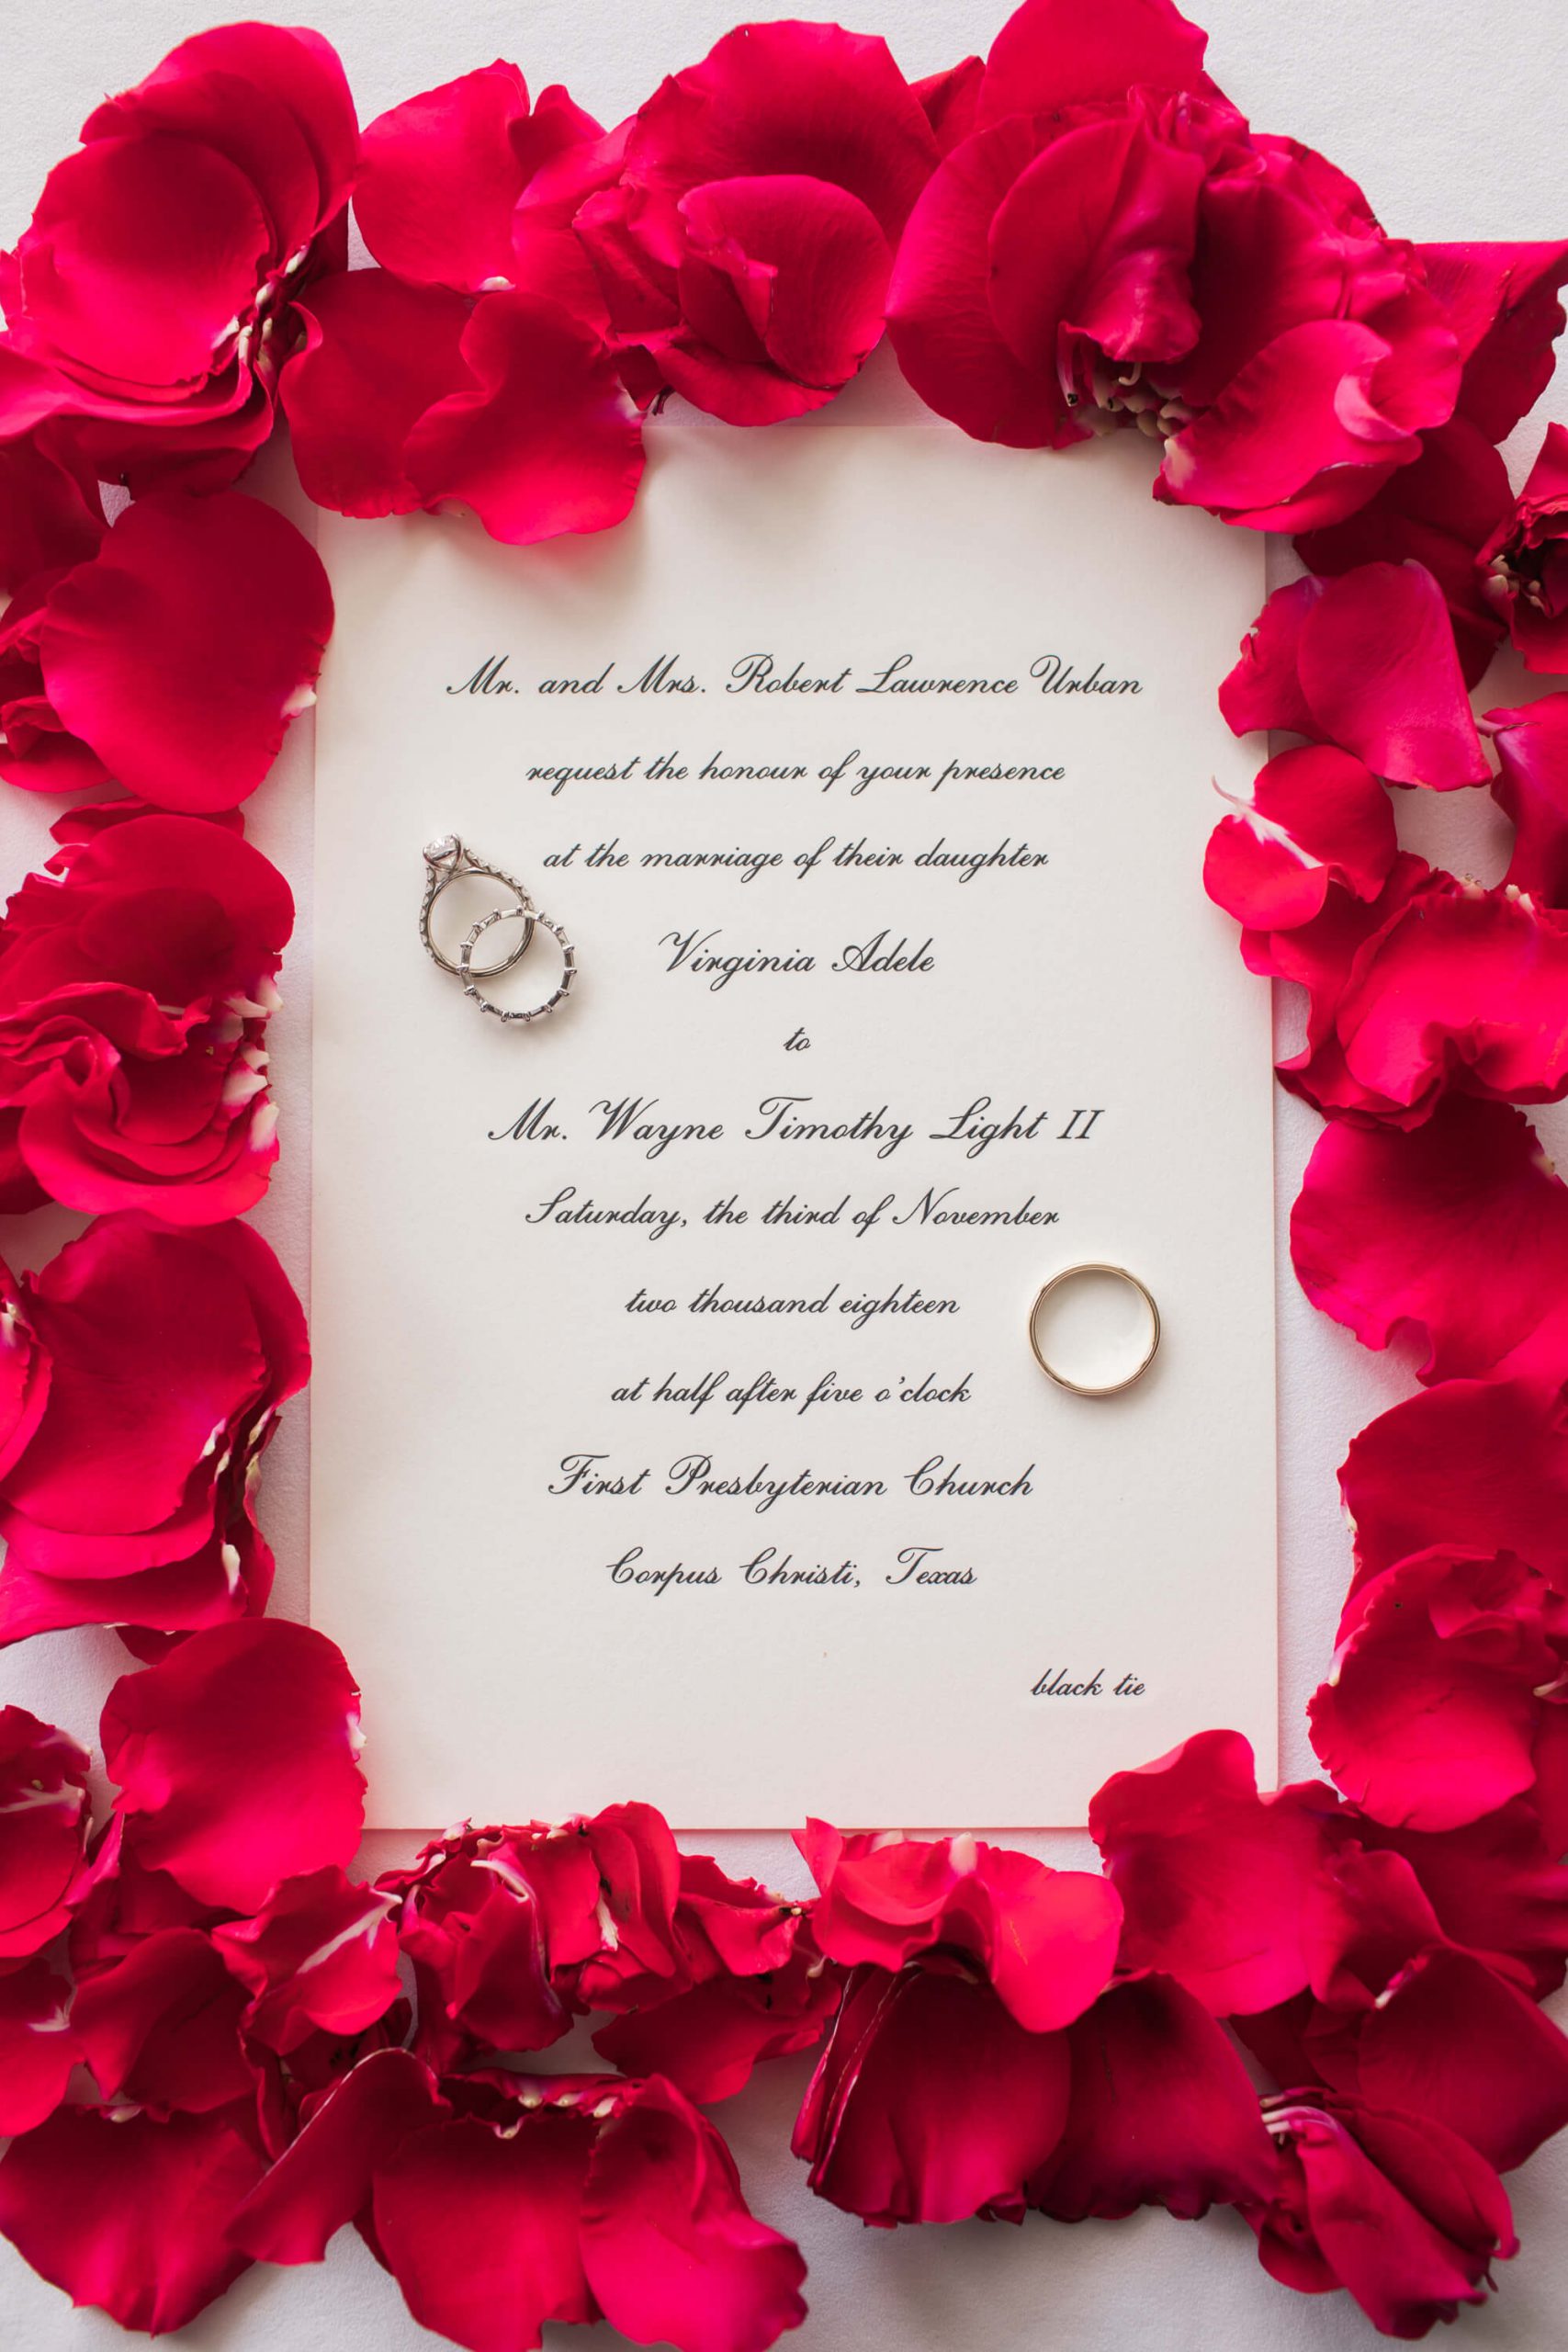 Mr. and Mrs. Robert Lawrence Urban
request the honour of your presence
at the marriage of their daughter
Virginia Adele
to
Mr. Wayne Timothy Light II
Saturday, the third of November
two thousand eighteen
at half after five o'clock
First Presbyterian Church
Corpus Christi, Texas
black tie